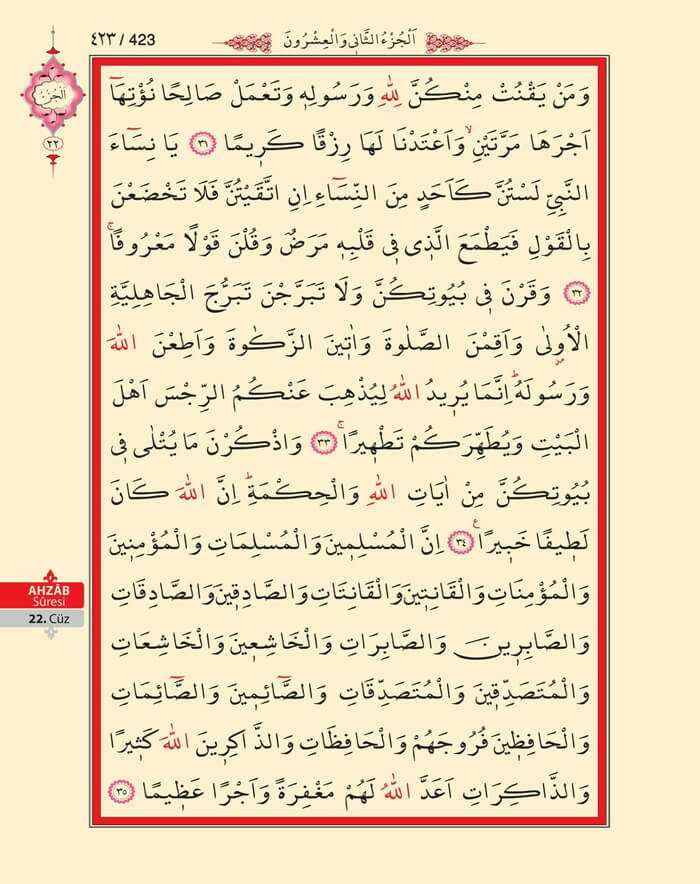 ٤٢٣ / 423
اَلْجُزْءُ الثَّانٖي وَالْعِشْرُونَ
اَلْجُزْءُ
٢٢
وَمَنْ يَقْنُتْ مِنْكُنَّ لِلّٰهِ وَرَسُولِهٖ وَتَعْمَلْ صَالِحًا نُؤْتِهَٓا
اَجْرَهَا مَرَّتَيْنِۙ وَاَعْتَدْنَا لَهَا رِزْقًا كَرٖيمًا ٣١ يَا نِسَٓاءَ
النَّبِيِّ لَسْتُنَّ كَاَحَدٍ مِنَ النِّسَٓاءِ اِنِ اتَّقَيْتُنَّ فَلَا تَخْضَعْنَ
بِالْقَوْلِ فَيَطْمَعَ الَّذٖي فٖي قَلْبِهٖ مَرَضٌ وَقُلْنَ قَوْلًا مَعْرُوفًاۚ
٣٢ وَقَرْنَ فٖي بُيُوتِكُنَّ وَلَا تَبَرَّجْنَ تَبَرُّجَ الْجَاهِلِيَّةِ
الْاُو۫لٰى وَاَقِمْنَ الصَّلٰوةَ وَاٰتٖينَ الزَّكٰوةَ وَاَطِعْنَ اللّٰهَ
وَرَسُولَهُؕ اِنَّمَا يُرٖيدُ اللّٰهُ لِيُذْهِبَ عَنْكُمُ الرِّجْسَ اَهْلَ
الْبَيْتِ وَيُطَهِّرَكُمْ تَطْهٖيرًاۚ ٣٣ وَاذْكُرْنَ مَا يُتْلٰى فٖي
بُيُوتِكُنَّ مِنْ اٰيَاتِ اللّٰهِ وَالْحِكْمَةِؕ اِنَّ اللّٰهَ كَانَ
لَطٖيفًا خَبٖيرًاࣖ ٣٤ اِنَّ الْمُسْلِمٖينَ وَالْمُسْلِمَاتِ وَالْمُؤْمِنٖينَ
وَالْمُؤْمِنَاتِ وَالْقَانِتٖينَ وَالْقَانِتَاتِ وَالصَّادِقٖينَ وَالصَّادِقَاتِ
وَالصَّابِرٖينَ وَالصَّابِرَاتِ وَالْخَاشِعٖينَ وَالْخَاشِعَاتِ
وَالْمُتَصَدِّقٖينَ وَالْمُتَصَدِّقَاتِ وَالصَّٓائِمٖينَ وَالصَّٓائِمَاتِ
وَالْحَافِظٖينَ فُرُوجَهُمْ وَالْحَافِظَاتِ وَالذَّاكِرٖينَ اللّٰهَ كَثٖيرًا
وَالذَّاكِرَاتِ اَعَدَّ اللّٰهُ لَهُمْ مَغْفِرَةً وَاَجْرًا عَظٖيمًا ٣٥
AHZÂB
Sûresi
22. Cüz